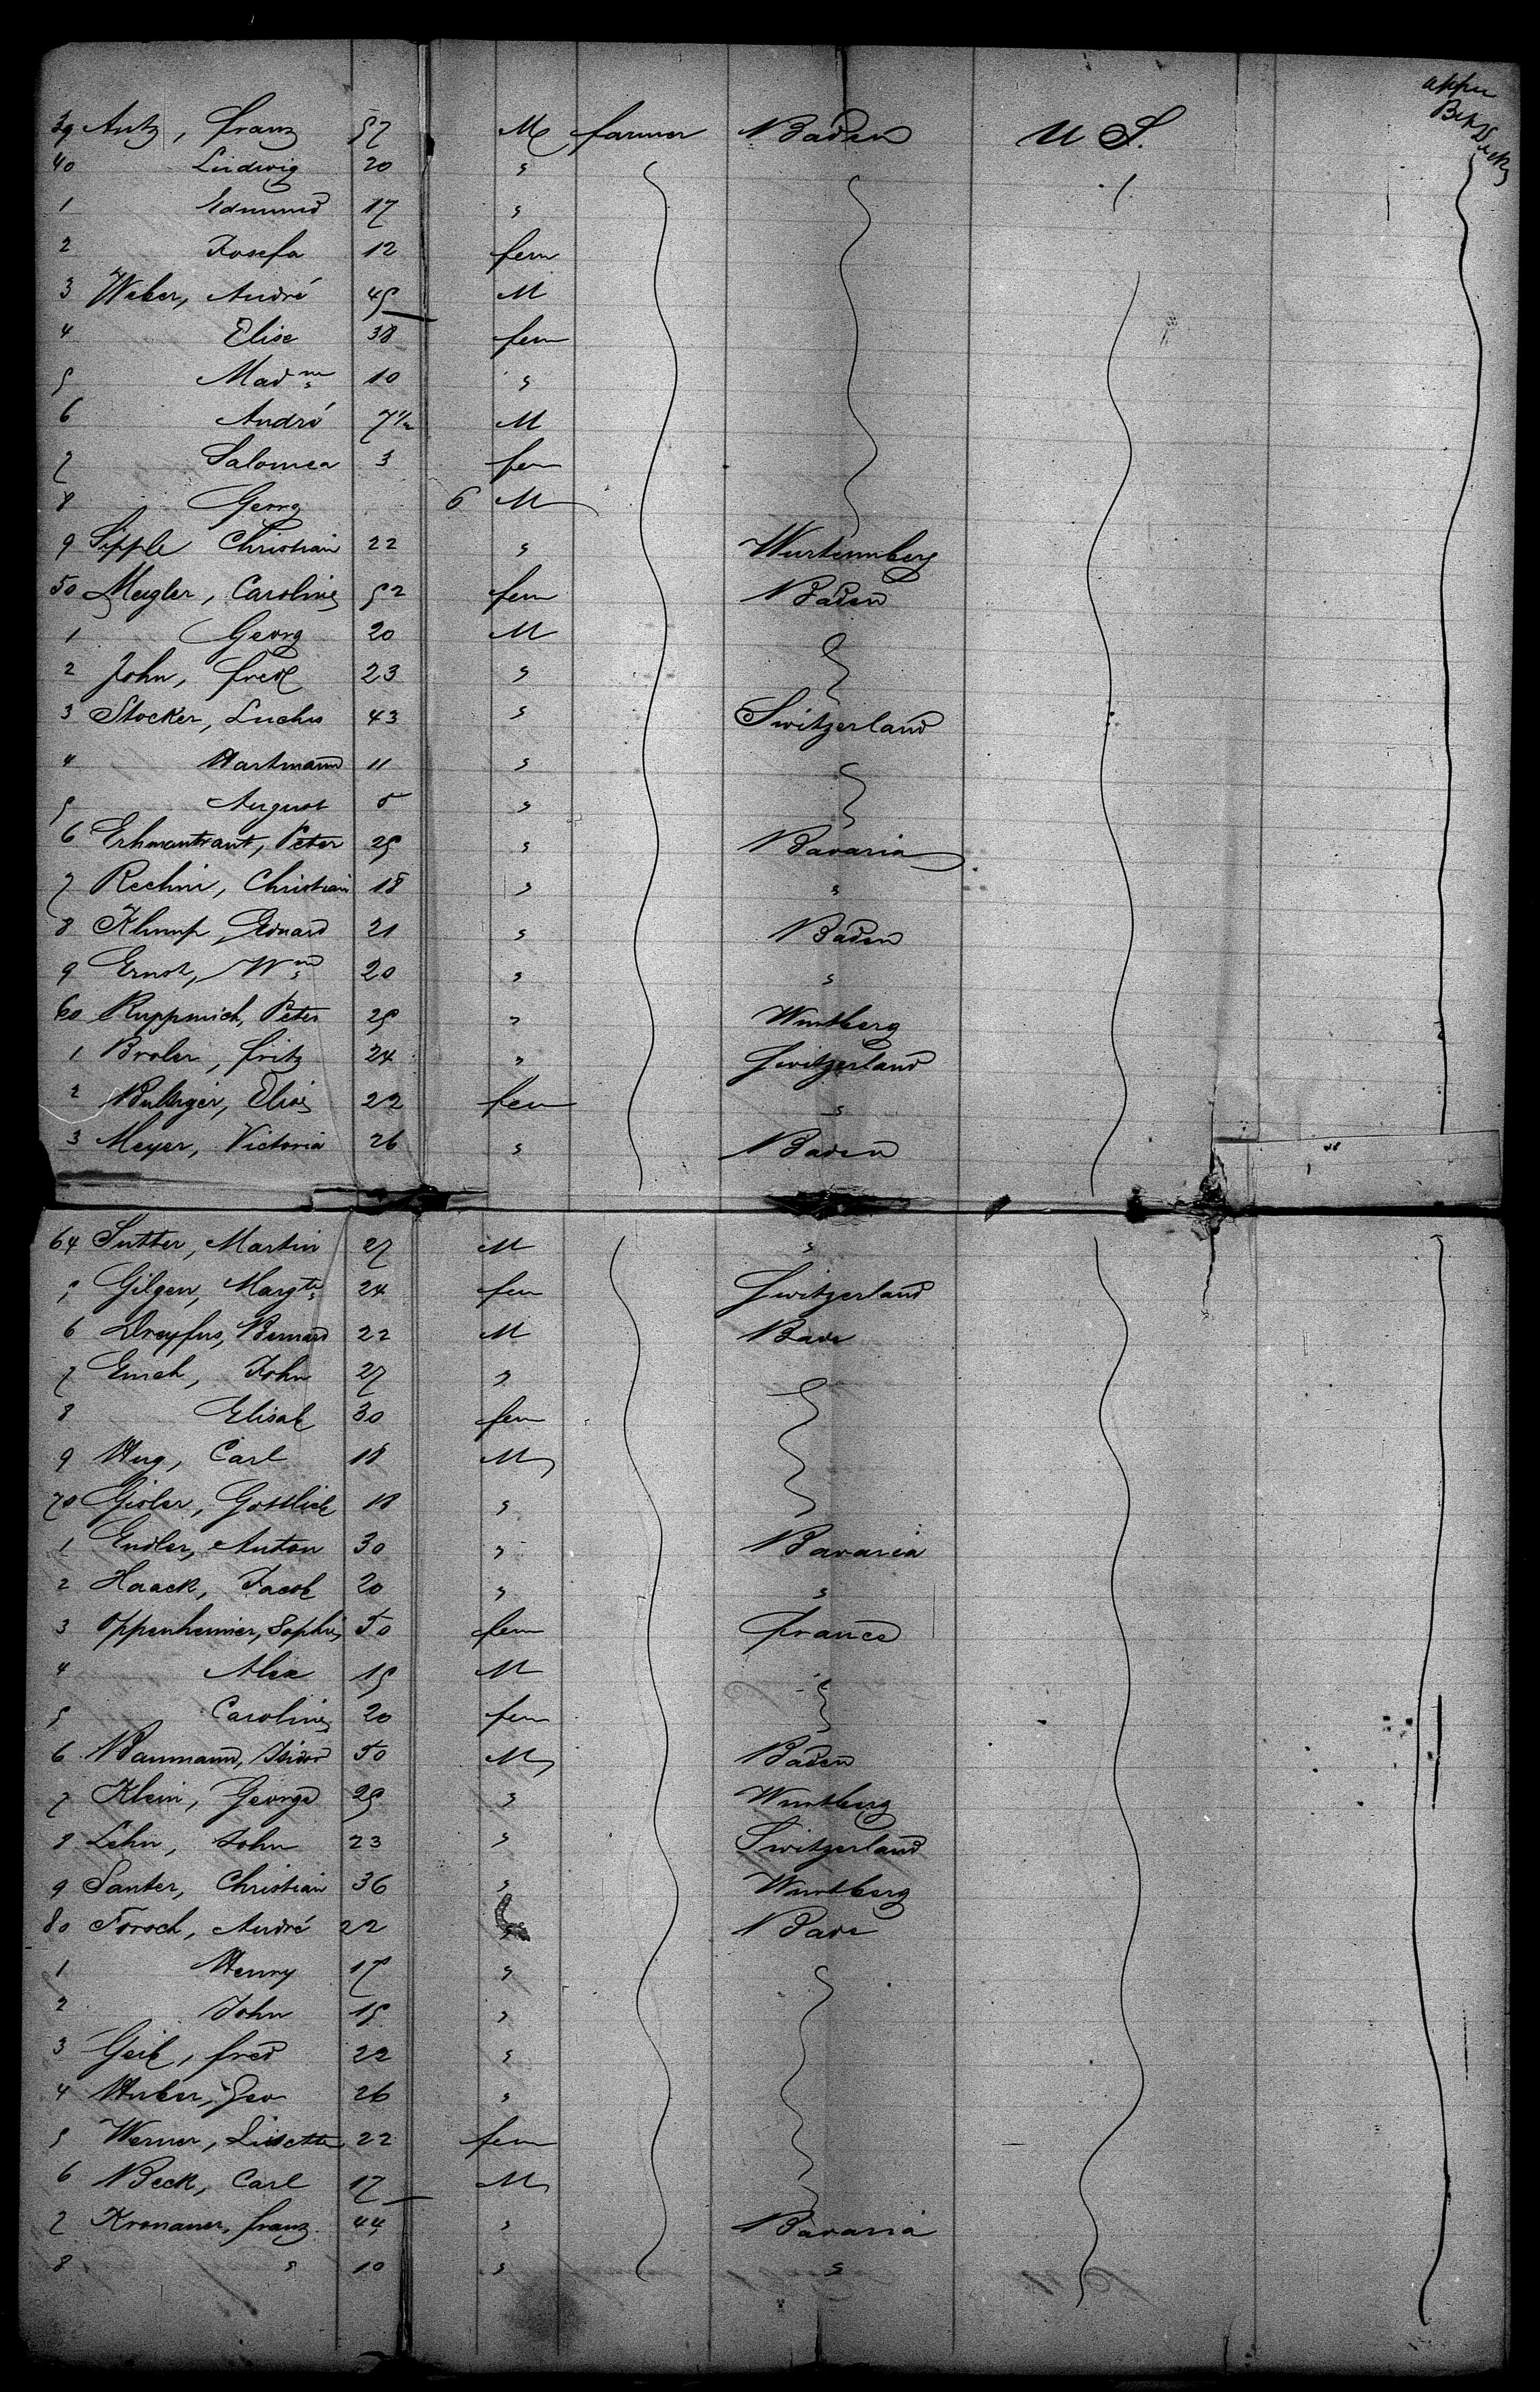 appu
Bet Deck
39 Antz, franz 57 M farmer Baden U S.
40 Ludwig 20 "
1 Edmund 17 "
2 Josefa 12 fem
3 Weber, André 45 M
4 Elise 38 fem
5 Mad^ne 10 "
6 André 7 1/2 M
7 Salomea 3 fem
8 Georg 6 M
9 Sipple Christian 22 " Wurtemberg
50 Megler, Caroline 52 fem Baden
1 Georg 20 M
2 John, fred 23 "
3 Stocker, Luchs 43 " Switzerland
4 Hartmann 11 "
5 August 5 "
6 Erhmantraut, Peter 25 " Bavaria
7 Rechni, Christian 18 " "
8 Klump, Eduard 21 " Baden
9 Ernst, W^m 20 " "
60 Ruppmich, Peter 25 " Wurtberg
1 Broler, fritz 24 " Switzerland
2 Elise 22 fem "
3 Meyer, Victoria 26 " Baden
64 Sutter, Martin 27 M "
5 Gilgen, Marg^te 24 fem Switzerland
6 Dreyfus, Bernard 22 M Bade
7 Emch, John 27 "
8 Elisab 30 fem
9 Hug, Carl 18 M
70 Gisler, Gottlieb 18 "
1 Endler, Anton 30 " Bavaria
2 Haack, Jacob 20 " "
3 Oppenheimer, Sophie 50 fem france
4 Alex 15 M
5 Caroline 20 fem
6 Baumann, Isidor 50 M Baden
7 Klein, George 25 " Wurtberg
8 Lehn, John 23 " Switzerland
9 Santer, Christian 36 " Wurtberg
80 Forsch, André 22 " Bade
1 Henry 17 "
2 John 15 "
3 Geib, fred 22 "
4 Huber, Geo 26 "
5 Werner, Lisette 22 fem
6 Beck, Carl 17 M
7 Kronauer, franz 44 " Bavaria
8 " 10 " "